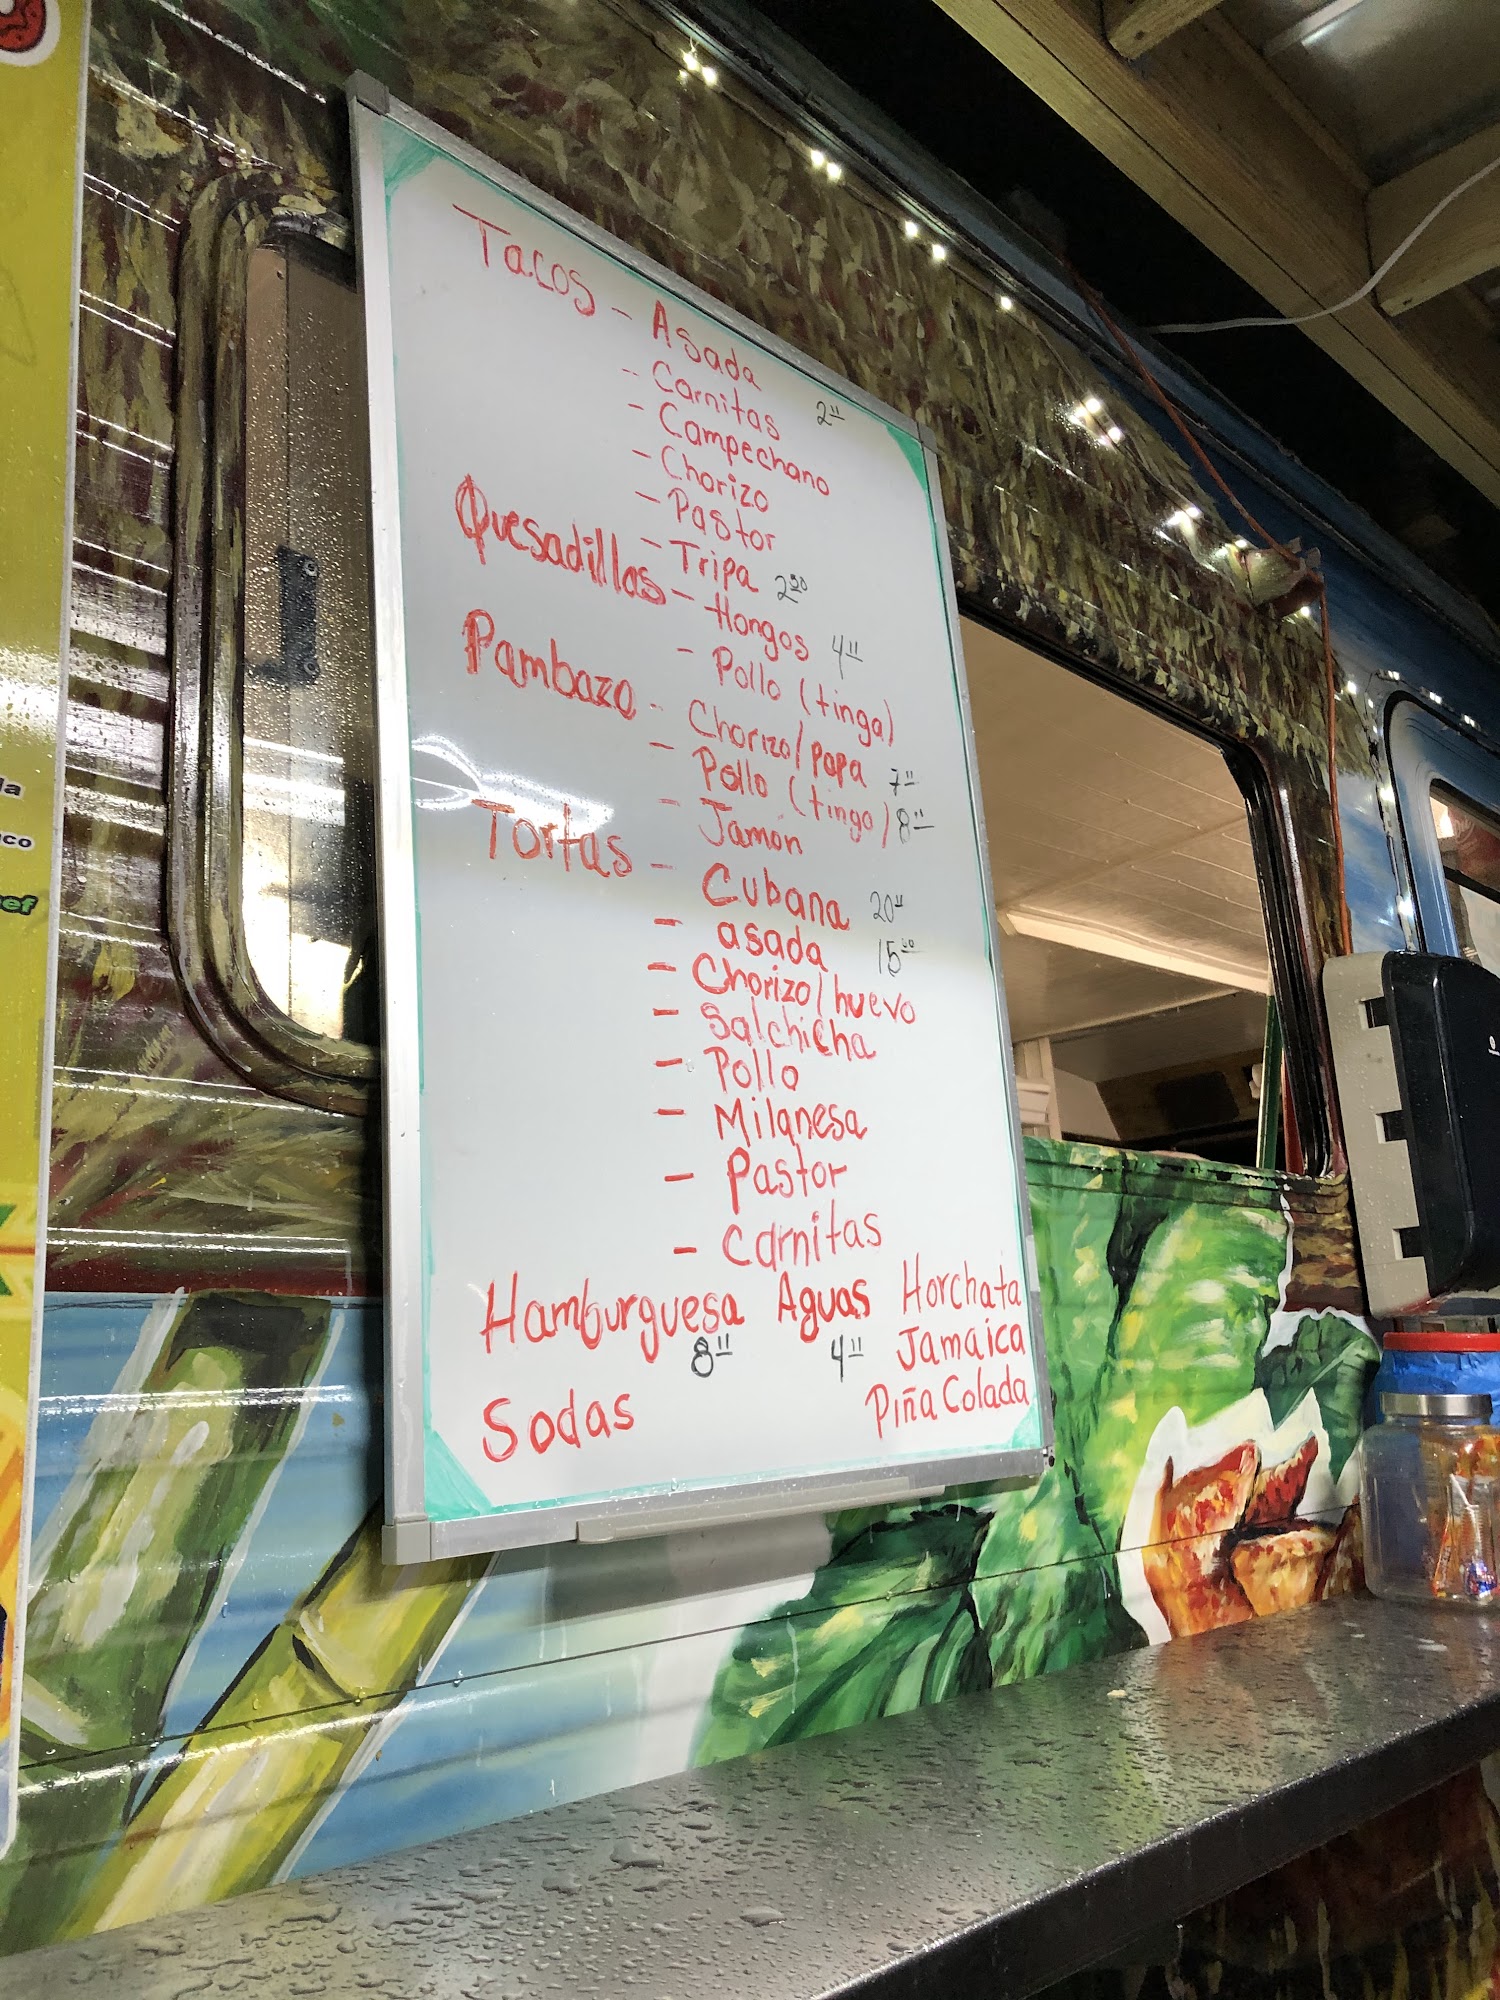 Tacos - Asada
- Carnitas 2"
- Campechano
- Chorizo
- Pastor
- Tripa 2 50
Quesadillas - Hongos 4"
- Pollo (tinga)
Pambazo - Chorizo/papa 7"
- Pollo (tinga) 8"
- Jamón
Tortas - Cubana 20"
- asada 15 00
- Chorizo/huevo
- Salchicha
- Pollo
- Milanesa
- Pastor
- Carnitas
Hamburguesa Aguas Horchata
8" 4" Jamaica
Sodas Piña Colada